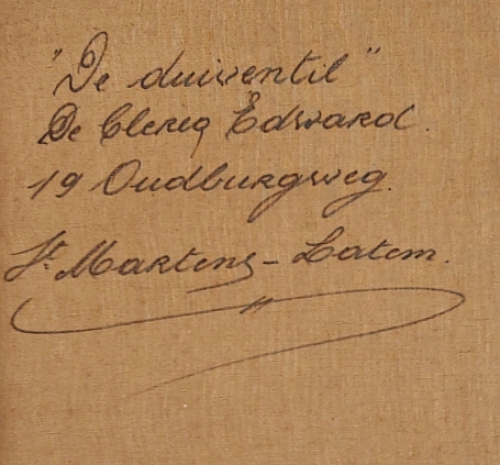 "De duiventil"
De Clercq Edward.
19 Oudburgweg.
St Martens-Latem.